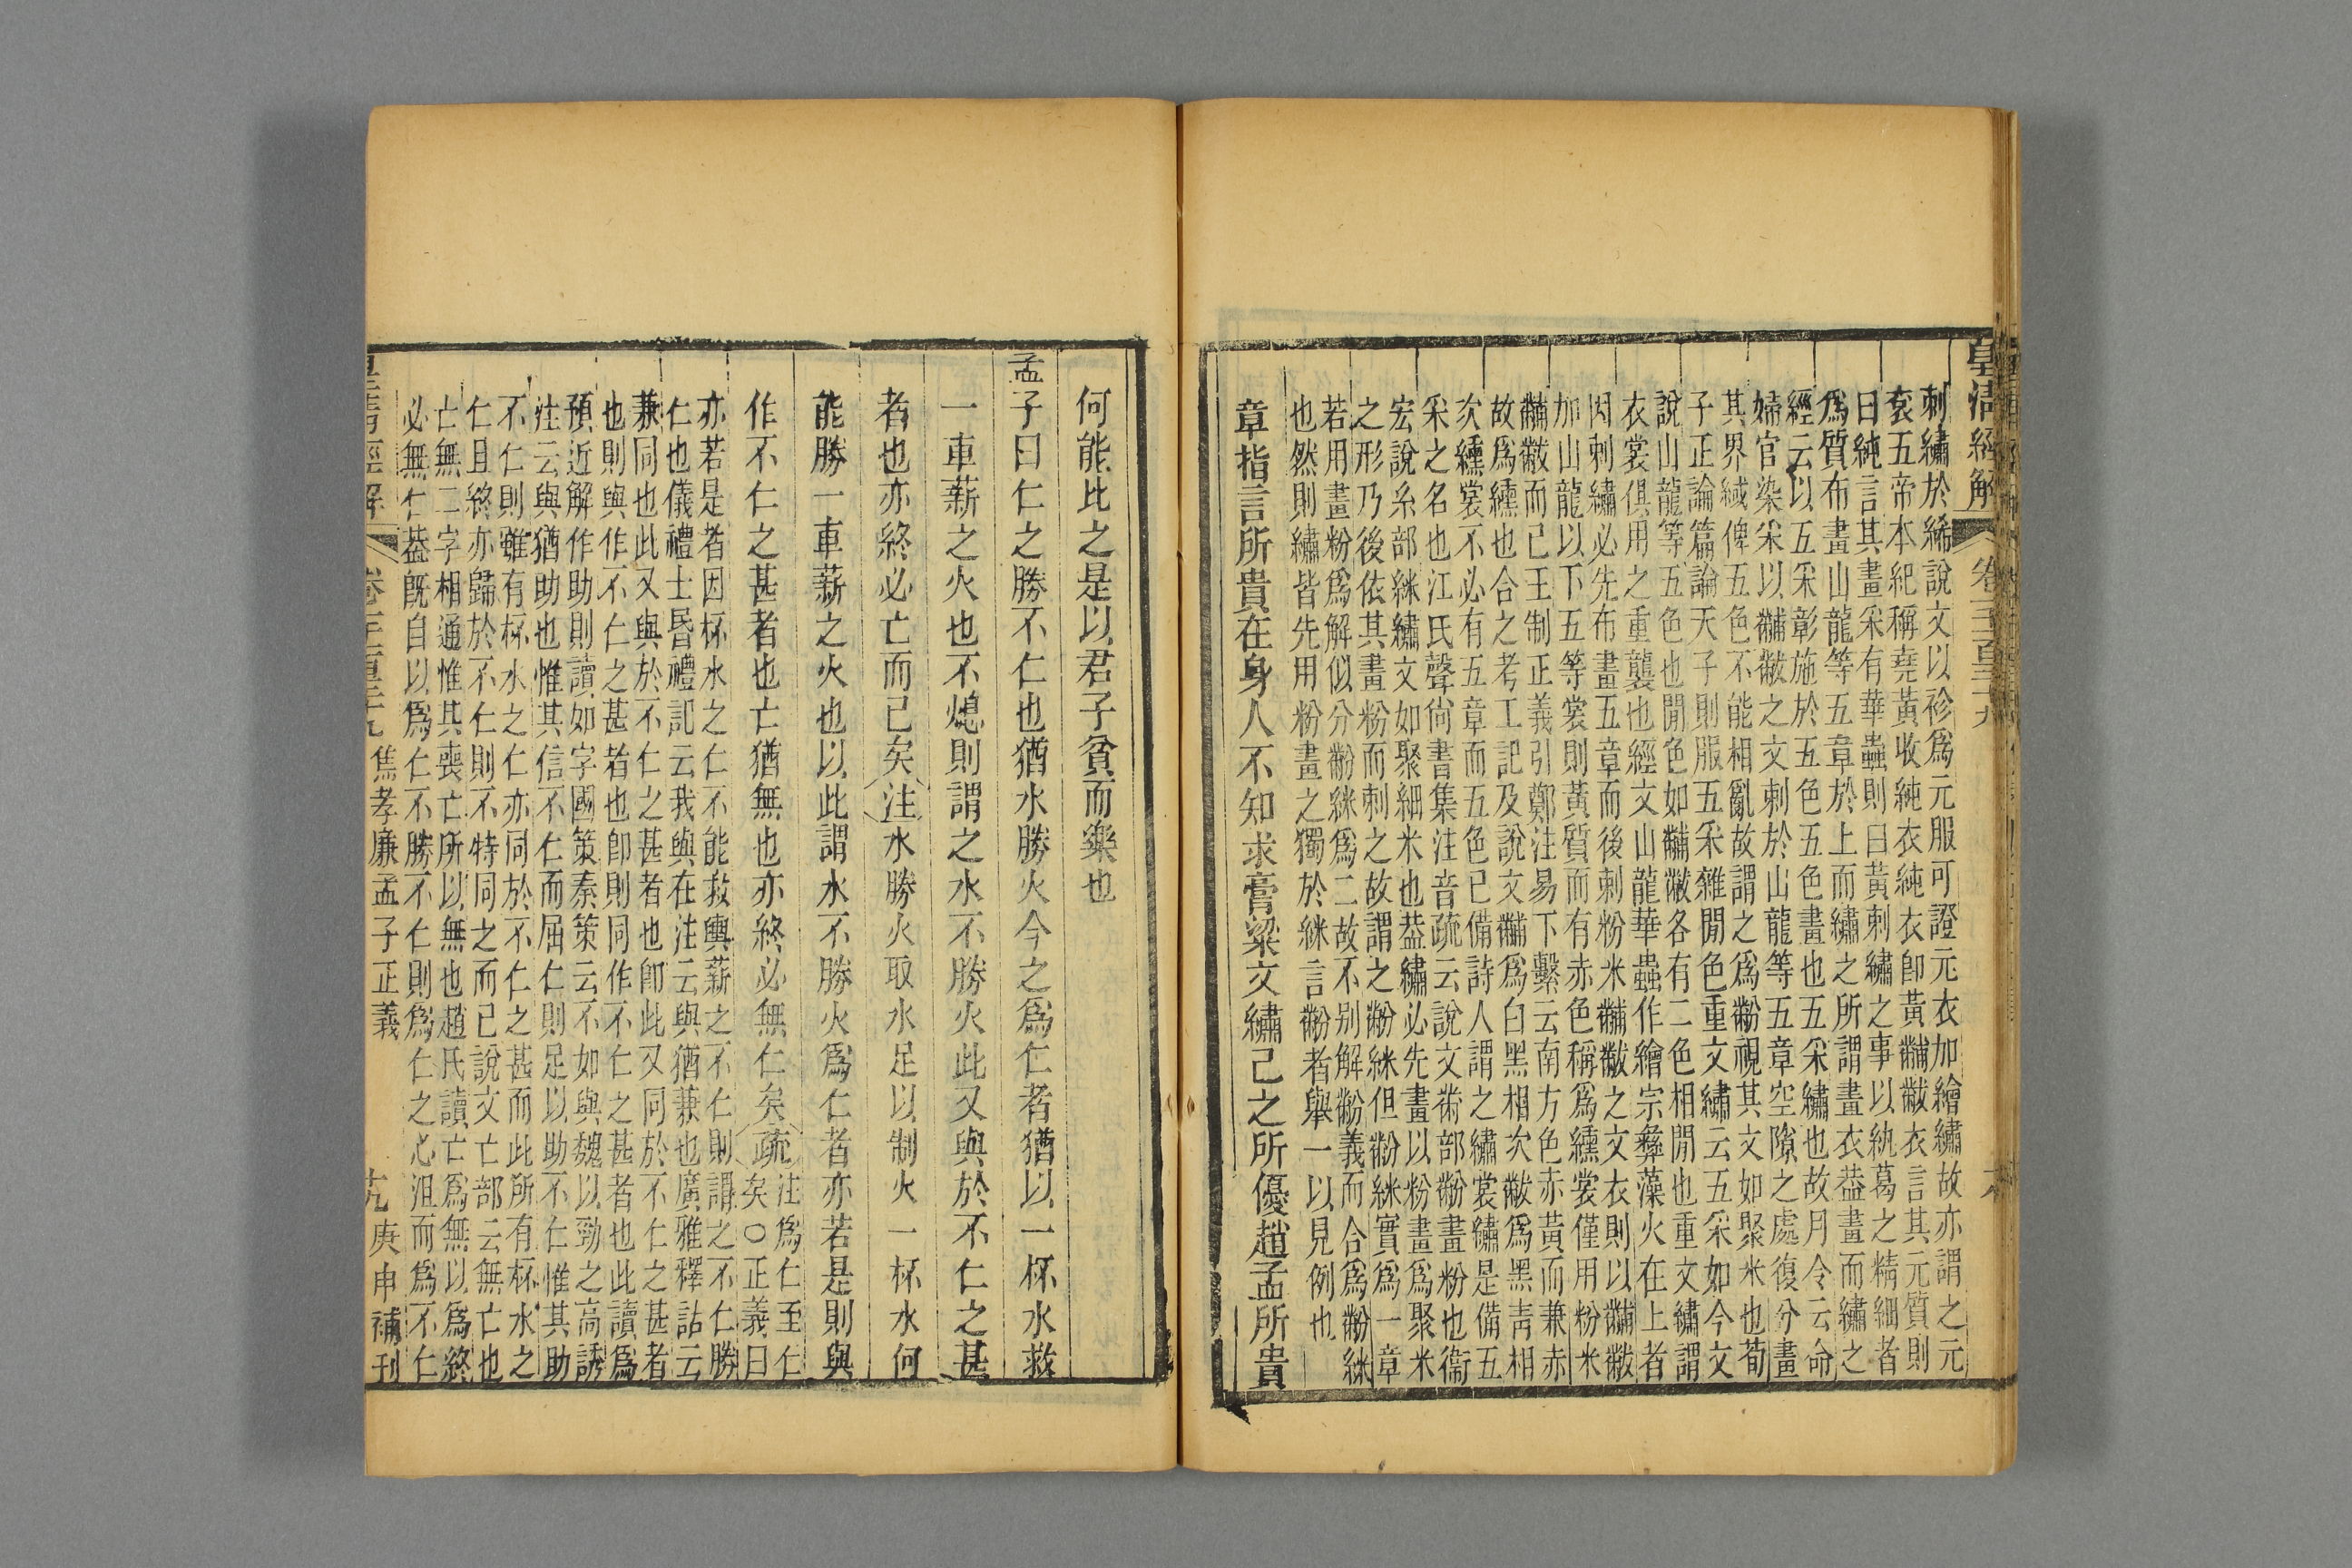 皇清經解
卷一千一百三十九
刺繡於絺說文以袗爲元服可證元衣加繪繡故亦謂之元
衮五帝本紀稱堯黃收純衣純衣卽黃黼黻衣言其元質則
曰純言其畫采有華蟲則曰黃刺繡之事以紈葛之精細者
爲質布畫山龍等五章於上而繡之所謂畫衣葢畫而繡之
經云以五采彰施於五色五色畫也五采繡也故月令云命
婦官染采以黼黻之文刺於山龍等五章空隙之處復分畫
其界緎俾五色不能相亂故謂之爲黺視其文如聚米也荀
子正論篇論天子則服五采雜閒色重文繡云五采如今文
說山龍等五色也閒色如黼黻各有二色相閒也重文繡謂
衣裳俱用之重襲也經文山龍華蟲作繪宗彝藻火在上者
因刺繡必先布畫五章而後刺粉米黼黻之文衣則以黼黻
加山龍以下五等裳則黃質而有赤色稱爲纁裳僅用粉米
黼黻而已王制正義引鄭注易下繫云南方色赤黃而兼赤
故爲纁也合之考工記及說文黼爲白黑相次黻爲黑靑相
次纁裳不必有五章而五色已備詩人謂之繡裳繡是備五
采之名也江氏聲尙書集注音疏云說文黹部黺畫粉也衞
宏說糸部絑繡文如聚細米也葢繡必先畫以粉畫爲聚米
之形乃後依其畫粉而刺之故謂之黺絑但黺絑實爲一章
若用畫粉爲解似分黺絑爲二故不别解黺義而合爲黺絑
也然則繡皆先用粉畫之獨於絑言黺者舉一以見例也
章指言所貴在身人不知求膏粱文繡己之所優趙孟所貴
何能比之是以君子貧而樂也
孟子曰仁之勝不仁也猶水勝火今之爲仁者猶以一杯水救
一車薪之火也不熄則謂之水不勝火此又與於不仁之甚
者也亦終必亡而已矣注水勝火取水足以制火一杯水何
能勝一車薪之火也以此謂水不勝火爲仁者亦若是則與
作不仁之甚者也亡猶無也亦終必無仁矣疏注爲仁至仁
矣○正義曰
亦若是者因杯水之仁不能救輿薪之不仁則謂之不仁勝
仁也儀禮士昏禮記云我與在注云與猶兼也廣雅釋詁云
兼同也此又與於不仁之甚者也卽此又同於不仁之甚者
也則與作不仁之甚者也卽則同作不仁之甚者也此讀爲
預近解作助則讀如字國策秦策云不如與魏以勁之高誘
注云與猶助也惟其信不仁而屈仁則足以助不仁惟其助
不仁則雖有杯水之仁亦同於不仁之甚而此所有杯水之
仁且終亦歸於不仁則不特同之而已說文亡部云無亡也
亡無二字相通惟其喪亡所以無也趙氏讀亡爲無以爲終
必無仁葢旣自以爲仁不勝不仁則爲仁之心沮而爲不仁
皇淸經解
卷一千一百三十九
焦孝廉孟子正義
庚申補刊